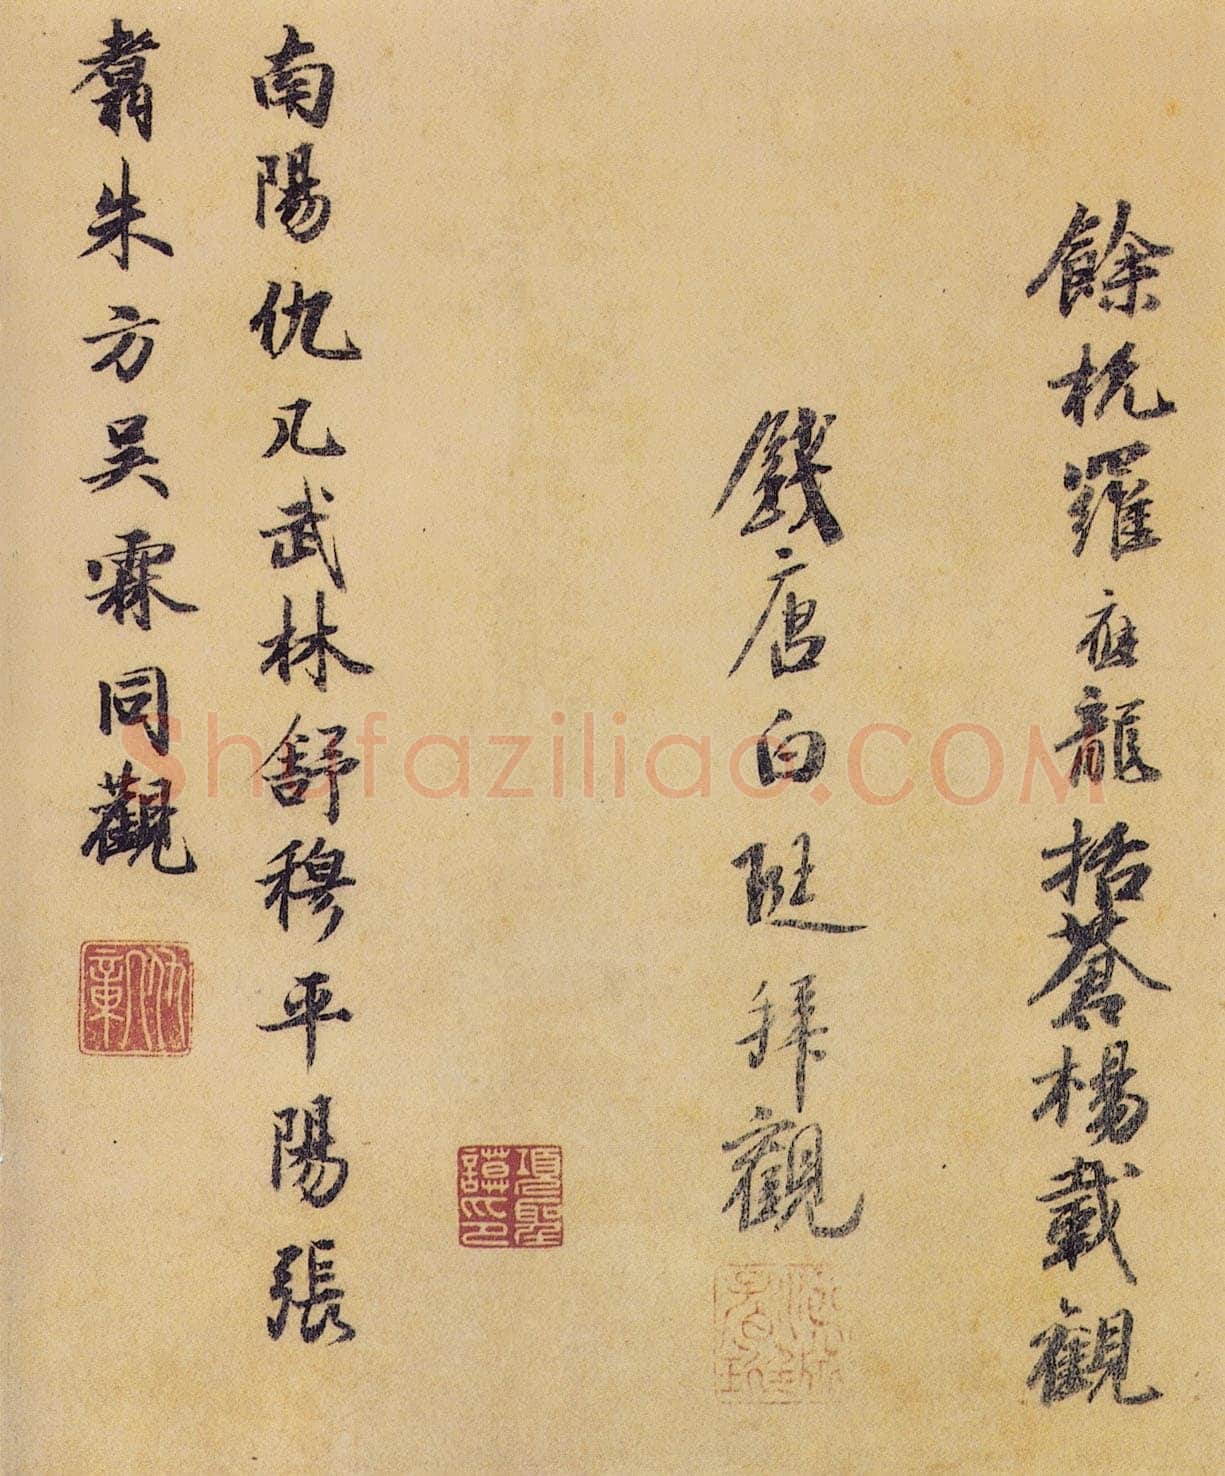 餘杭羅應龍括蒼楊載觀
錢唐白珽拜觀
南陽仇几武林舒穆平陽張
翥朱方吳霖同觀
項聖謨印
Shufaziliao.COM